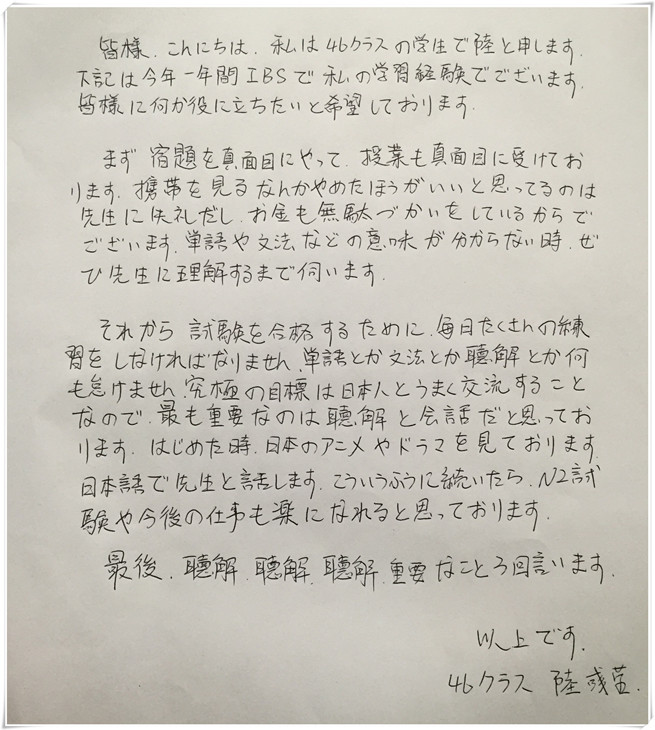 皆様、こんにちは、私は46クラスの学生で陸と申します。
下記は今年一年間IBSで私の学習経験でございます。
皆様に何か役に立ちたいと希望しております。
まず宿題を真面目にやって、授業も真面目に受けてお
ります。携帯を見るなんかやめたほうがいいと思ってるのは
先生に失礼だし、お金も無駄づかいをしているからで
ございます。単語や文法などの意味が分からない時、ぜ
ひ先生に理解するまで伺います。
それから試験を合格するために、毎日たくさんの練
習をしなければなりません。単語とか文法とか聴解とか何
も怠けません。究極の目標は日本人とうまく交流すること
なので、最も重要なのは聴解と会話だと思ってお
ります。はじめた時、日本のアニメやドラマを見ております。
日本語で先生と話します。こういうふうに続いたら、N2試
験や今後の仕事も楽になれると思っております。
最後、聴解、聴解、聴解、重要なこと3回言います。
以上です。
46クラス 陸